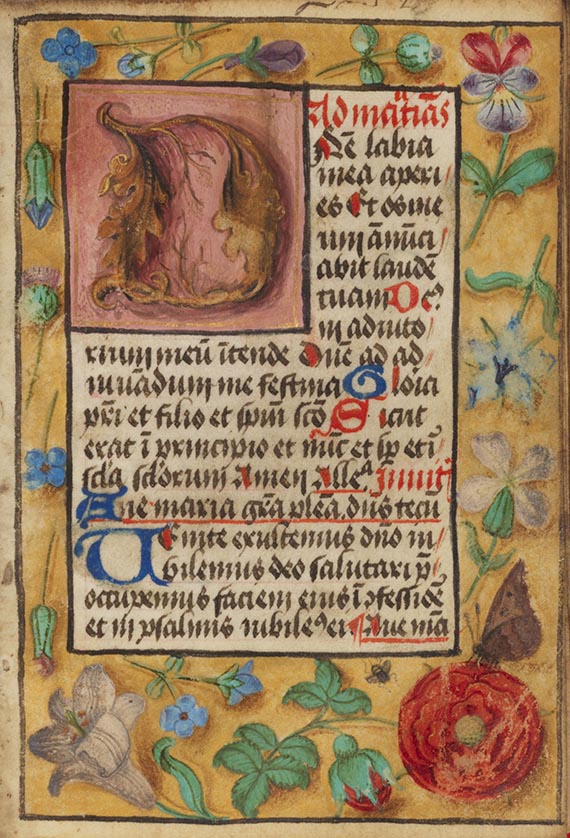 Ad mātutinās
Dn̄e labia
mea aperi/
es Et os me
um ānūci/
abit laudē
tuam De⁹
in adiuto/
rium meū ītende Dn̄e ad ad/
iuuādum me festina Gloria
pr̄i et filio et spūi scō Sicut
erat ī principio et nūc et sp̄ et ī
scl̄a scl̄orum Amen Alle^a
Aue maria grā plēa, dn̄s tecū
Uenite exultemus dn̄o iu/
bilemus deo salutari nr̄o
occupemus faciem eius ī ꝯfessiōē
et in psalmis iubile⁹ ei Aue mā